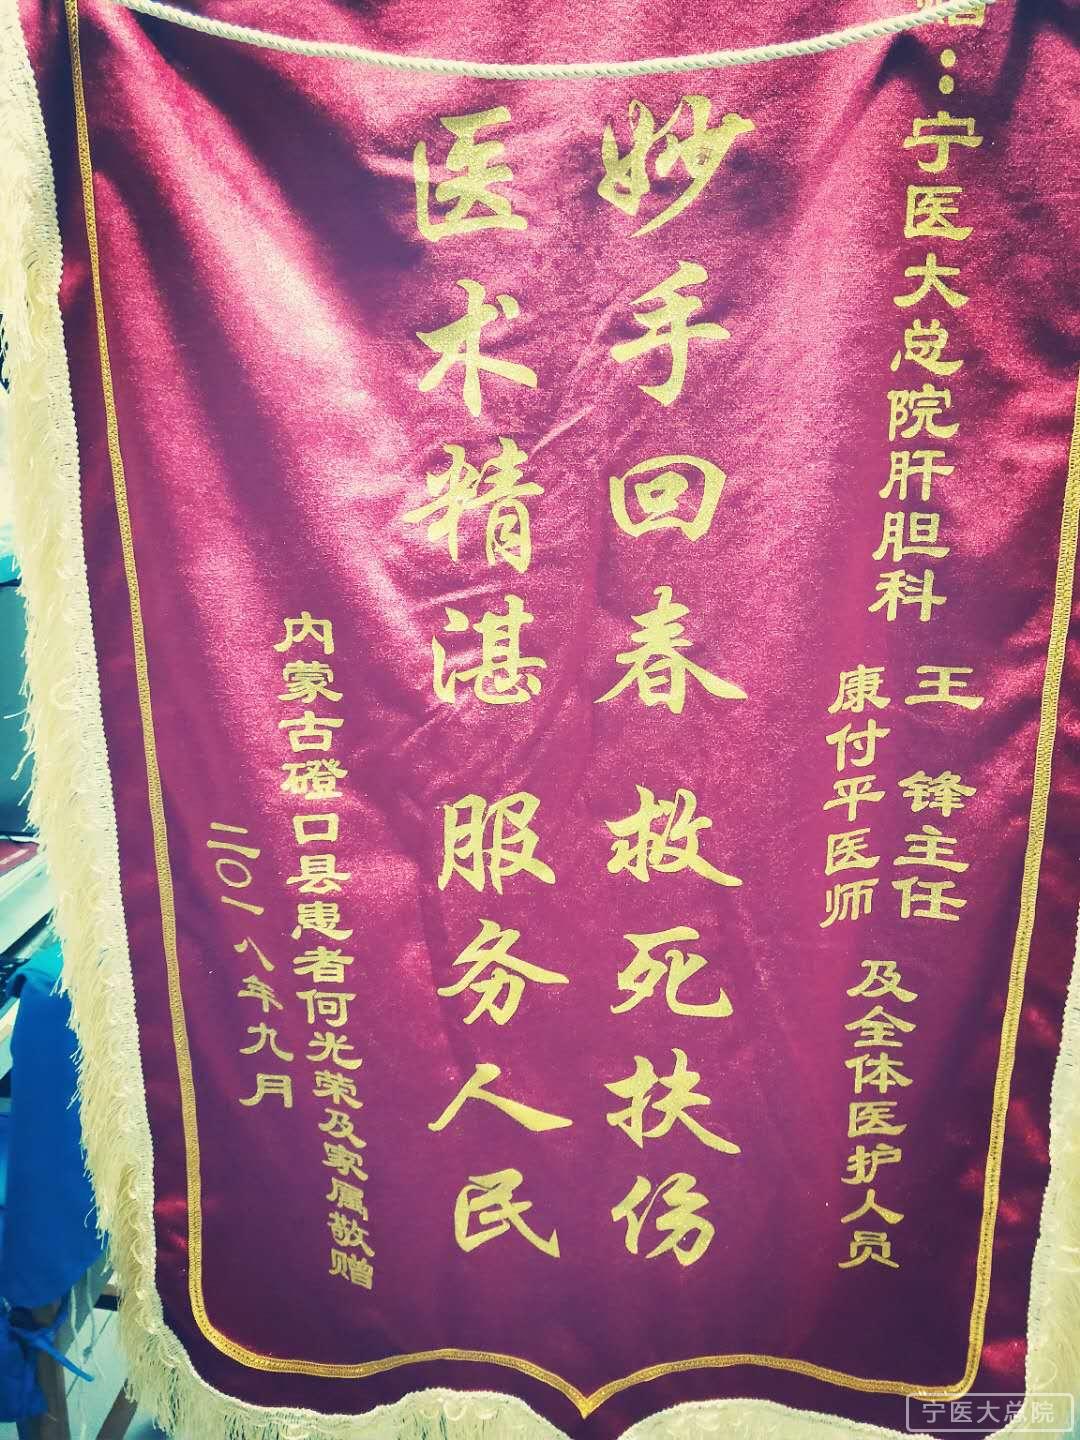 赠：宁医大总院肝胆科
王锋主任
康付平医师
及全体医护人员
妙手回春 救死扶伤
医术精湛 服务人民
内蒙古磴口县患者何光荣及家属敬赠
二〇一八年九月
宁医大总院